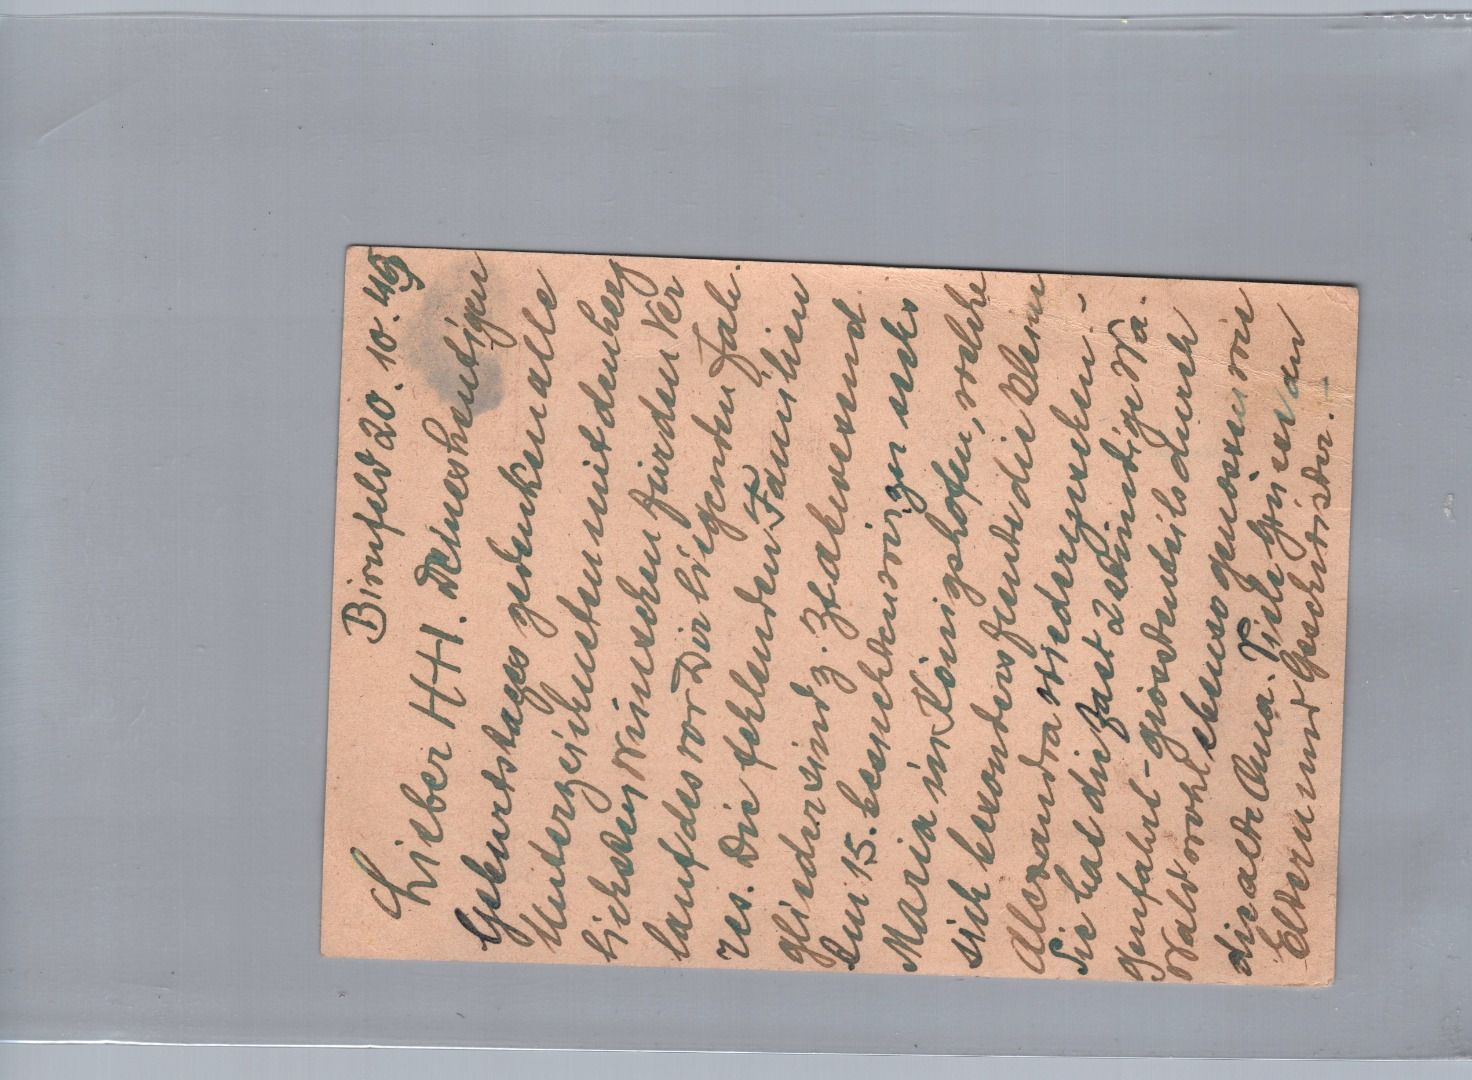 Birnfeld 20. 10. 45
Lieber HH. Deines heutigen
Geburtstages gedenken alle
Unterzeichneten mit den herz
lichsten Wünschen für den Ver
lauf des vor Dir liegenden Jah.
res. Die fehlenden Familien
glieder sind z. Zt abwesend
Am 15. besuchten wir zu sechs
Maria in Königshofen, welche
sich besonders freute die kleine
Alexandra wiederzusehen. -
Sie hat die fast 2 stündige Wa.
genfahrt - grösstenteils durch
Wald wohl ebenso genossen wie
die alte Oma. Viele Grüsse an
Eltern und Geschwister. -